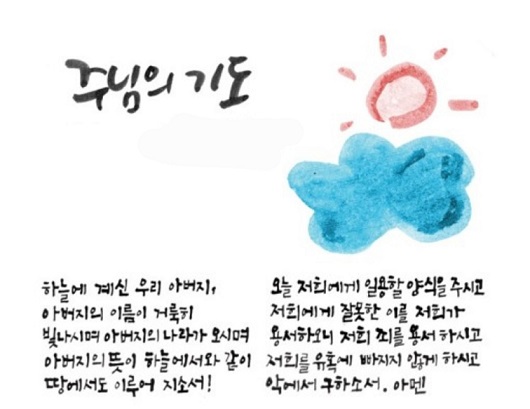 주님의 기도
하늘에 계신 우리 아버지,
아버지의 이름이 거룩히
빛나시며 아버지의 나라가 오시며
아버지의 뜻이 하늘에서와 같이
땅에서도 이루어 지소서!
오늘 저희에게 일용할 양식을 주시고
저희에게 잘못한 이를 저희가
용서하오니 저희 죄를 용서 하시고
저희를 유혹에 빠지지 않게 하시고
악에서 구하소서. 아멘